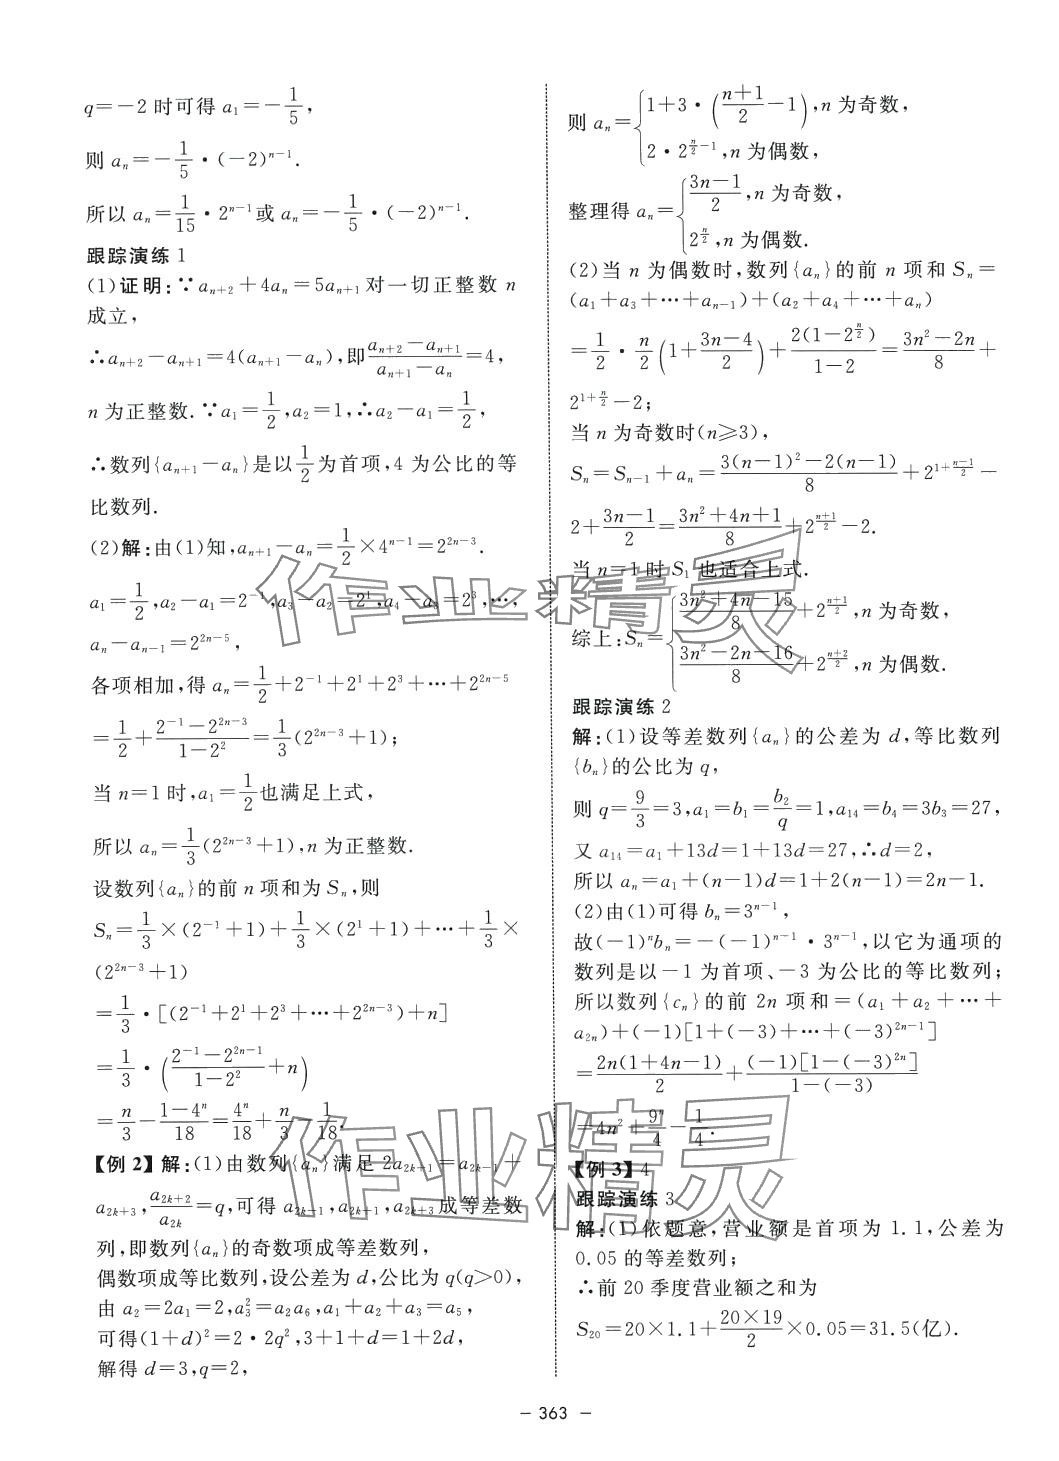 q=-2时可得 a₁=-1/5,
则 aₙ=-1/5·(-2)ⁿ⁻¹.
所以 aₙ=1/15·2ⁿ⁻¹或 aₙ=-1/5·(-2)ⁿ⁻¹.
跟踪演练1
(1)证明:∵aₙ₊₂+4aₙ=5aₙ₊₁对一切正整数 n
成立,
∴aₙ₊₂-aₙ₊₁=4(aₙ₊₁-aₙ),即(aₙ₊₂-aₙ₊₁)/(aₙ₊₁-aₙ)=4,
n为正整数.∵a₁=1/2,a₂=1,∴a₂-a₁=1/2,
∴数列{aₙ₊₁-aₙ}是以1/2为首项,4为公比的等
比数列.
(2)解:由(1)知,aₙ₊₁-aₙ=1/2×4ⁿ⁻¹=2²ⁿ⁻³.
a₁=1/2,a₂-a₁=2⁻¹,a₃-a₂=2¹,a₄-a₃=2³,…,
aₙ-aₙ₋₁=2²ⁿ⁻⁵,
各项相加,得 aₙ=1/2+2⁻¹+2¹+2³+…+2²ⁿ⁻⁵
=1/2+(2⁻¹-2²ⁿ⁻³)/(1-2²)=1/3(2²ⁿ⁻³+1);
当 n=1时,a₁=1/2也满足上式,
所以 aₙ=1/3(2²ⁿ⁻³+1),n为正整数.
设数列{aₙ}的前 n 项和为Sₙ,则
Sₙ=1/3×(2⁻¹+1)+1/3×(2¹+1)+…+1/3×
(2²ⁿ⁻³+1)
=1/3·[(2⁻¹+2¹+2³+…+2²ⁿ⁻³)+n]
=1/3·((2⁻¹-2²ⁿ⁻¹)/(1-2²)+n)
=n/3-(1-4ⁿ)/18=4ⁿ/18+n/3-1/18.
【例2】解:(1)由数列{aₙ}满足 2a₂ₖ₊₁=a₂ₖ₋₁+
a₂ₖ₊₃,a₂ₖ₊₂/a₂ₖ=q,可得 a₂ₖ₋₁,a₂ₖ₊₁,a₂ₖ₊₃成等差数
列,即数列{aₙ}的奇数项成等差数列,
偶数项成等比数列,设公差为 d,公比为 q(q>0),
由 a₂=2a₁=2,a₃²=a₂a₆,a₁+a₂+a₃=a₅,
可得(1+d)²=2·2q²,3+1+d=1+2d,
解得 d=3,q=2,
则 aₙ={1+3·((n+1)/2-1),n为奇数,
2·2^(n/2-1),n为偶数,
整理得 aₙ={(3n-1)/2,n为奇数,
2^(n/2),n为偶数.
(2)当 n 为偶数时,数列{aₙ}的前 n 项和 Sₙ=
(a₁+a₃+…+aₙ₋₁)+(a₂+a₄+…+aₙ)
=1/2·n/2(1+(3n-4)/2)+2(1-2^(n/2))/(1-2)=(3n²-2n)/8+
2^(1+n/2)-2;
当 n 为奇数时(n≥3),
Sₙ=Sₙ₋₁+aₙ=(3(n-1)²-2(n-1))/8+2^(1+(n-1)/2)-
2+(3n-1)/2=(3n²+4n+1)/8+2^((n+1)/2)-2.
当 n=1时 S₁也适合上式.
综上:Sₙ={(3n²+4n-15)/8+2^((n+1)/2),n为奇数,
(3n²-2n-16)/8+2^((n+2)/2),n为偶数.
跟踪演练2
解:(1)设等差数列{aₙ}的公差为 d,等比数列
{bₙ}的公比为 q,
则 q=9/3=3,a₁=b₁=b₂/q=1,a₁₄=b₄=3b₃=27,
又 a₁₄=a₁+13d=1+13d=27,∴d=2,
所以 aₙ=a₁+(n-1)d=1+2(n-1)=2n-1.
(2)由(1)可得 bₙ=3ⁿ⁻¹,
故(-1)ⁿbₙ=-(-1)ⁿ⁻¹·3ⁿ⁻¹,以它为通项的
数列是以-1为首项、-3为公比的等比数列;
所以数列{cₙ}的前 2n 项和=(a₁+a₂+…+
a₂ₙ)+(-1)[1+(-3)+…+(-3)²ⁿ⁻¹]
=2n(1+4n-1)/2+(-1)[1-(-3)²ⁿ]/(1-(-3))
=4n²+9ⁿ/4-1/4.
【例3】4
跟踪演练3
解:(1)依题意,营业额是首项为1.1,公差为
0.05的等差数列;
∴前20季度营业额之和为
S₂₀=20×1.1+(20×19)/2×0.05=31.5(亿).
- 363 -
作业精灵
作业精灵